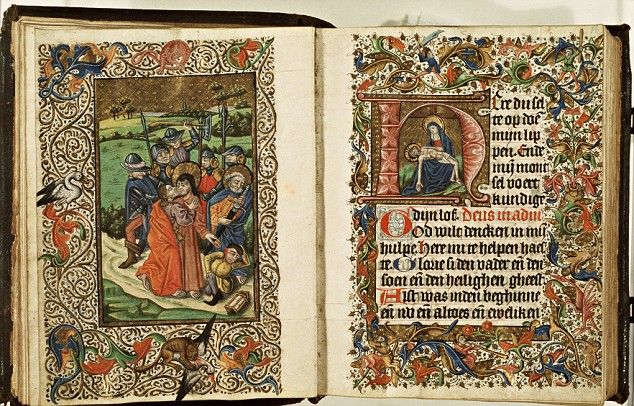 HEre du sel
te op doē
mijn lip
pen. Ende
mij mont
sel voert
kundighe
dijn lof. Deus in adiu
God wilt dencken in mi
hulpe Here mi te helpen haes
te. Glorie si den vader eñ den
soen eñ den heilighen gheest
Alst was inden beghinne
eñ nv eñ altoes eñ eweliken